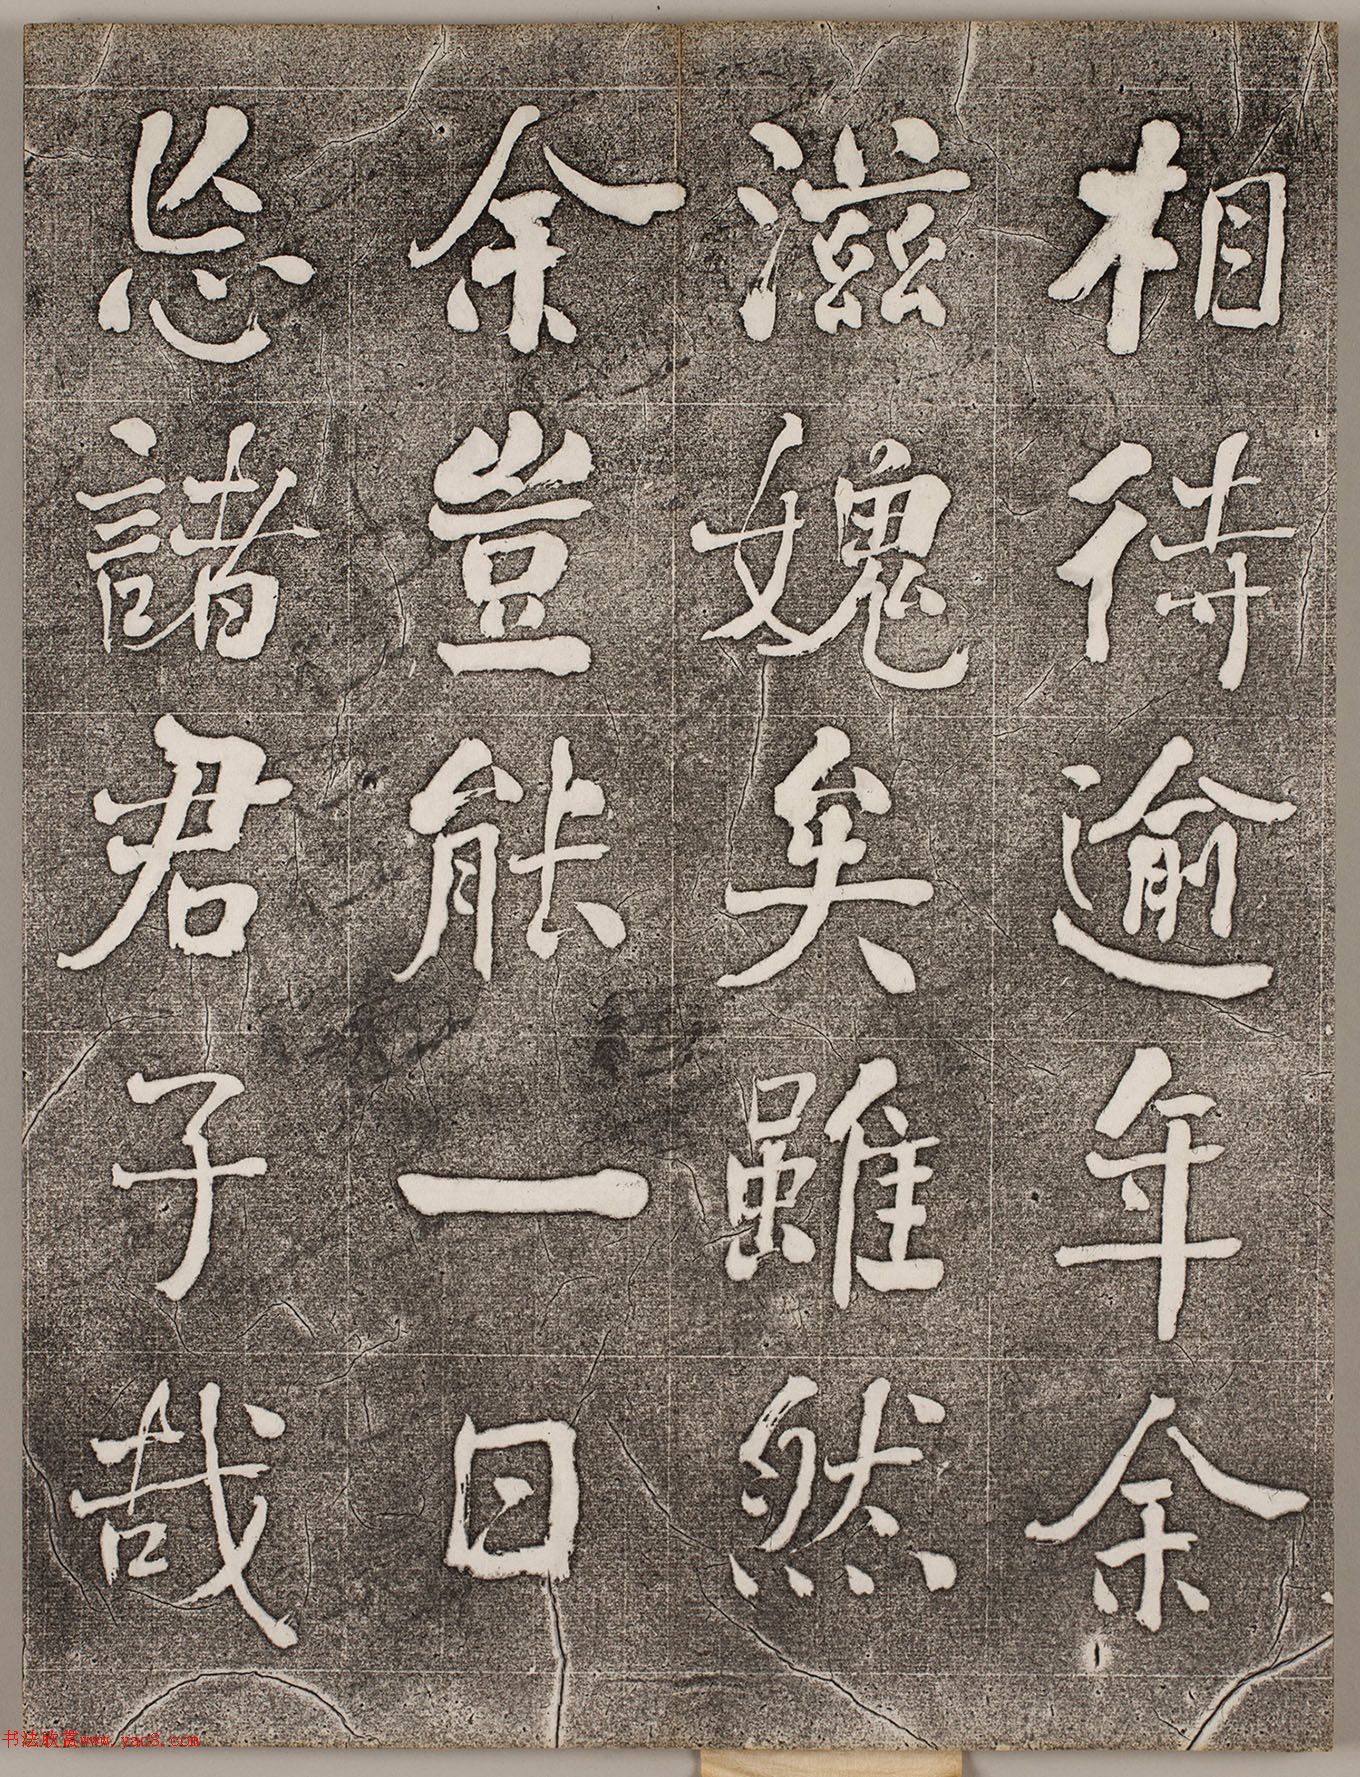 相待逾年余
滋媿矣雖然
余豈能一日
忘諸君子哉
书法欣赏www.yac8.com